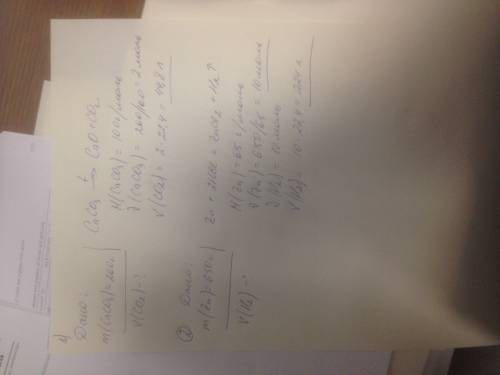 1)
Дано:
m(CaCO3)=200г
V(CO2)-?
CaCO3 t→ CaO+CO2
M(CaCO3)=100г/моль
ν(CaCO3)=200/100=2моль
V(CO2)=2·22,4=44,8л
② Дано:
m(Zn)=650г
V(H2)-?
Zn+2HCl=ZnCl2+H2↑
M(Zn)=65г/моль
ν(Zn)=650/65=10моль
ν(H2)=10моль
V(H2)=10·22,4=224л